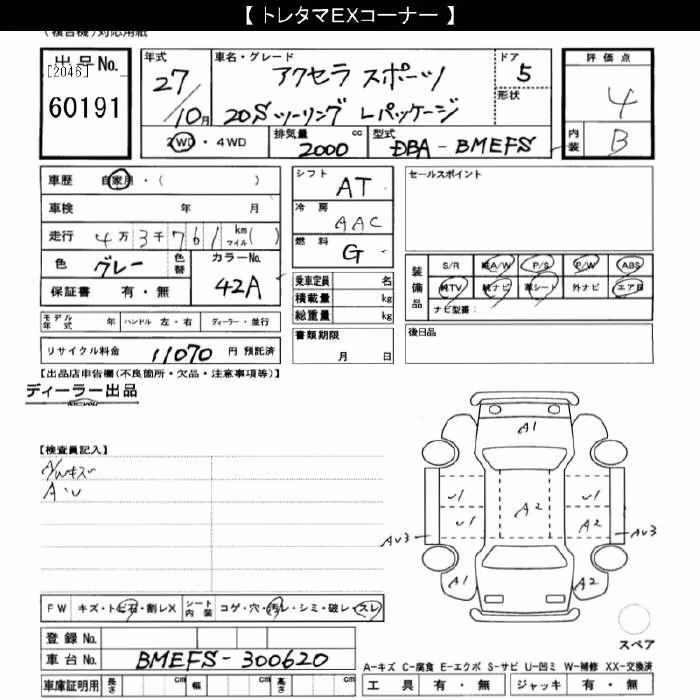 【 トレタマEXコーナー 】
出品No.
[2046]
60191
年式
27/10月
車名・グレード
アクセラ スポーツ
20Sツーリング Lパッケージ
ドア
5
形状
2WD・4WD
排気量
2000 cc
型式
DBA-BMEFS
評価点
4
内装
B
車歴 自家用・( )
車検 年 月
走行 4万3千761 km マイル( )
色 グレー
色替
カラーNo.
42A
保証書 有・無
シフト
AT
冷房
AAC
燃料
G
乗車定員 名
積載量 kg
総重量 kg
書類期限
月 日
セールスポイント
装備品
S/R 純A/W P/S P/W ABS
純TV 純ナビ 革シート 外ナビ エアB
ナビ型番:
後日品
モデル年式 年 ハンドル 左・右 ディーラー・並行
リサイクル料金 11070 円 預託済
【出品店申告欄(不良箇所・欠品・注意事項等)】
ディーラー出品
【検査員記入】
A/Wキズ
A・U
A1
U1
U1
A2
U1
A2
AU3
AU3
A1
A2
スペア
FW キズ・トビ石・割レX
シート内装 コゲ・穴・汚レ・シミ・破レ・スレ
登録No.
車台No. BMEFS-300620
車庫証明用 長さ cm 幅 cm 高さ cm
A-キズ C-腐食 E-エクボ S-サビ U-凹ミ W-補修 XX-交換済
工具 有・無 ジャッキ 有・無